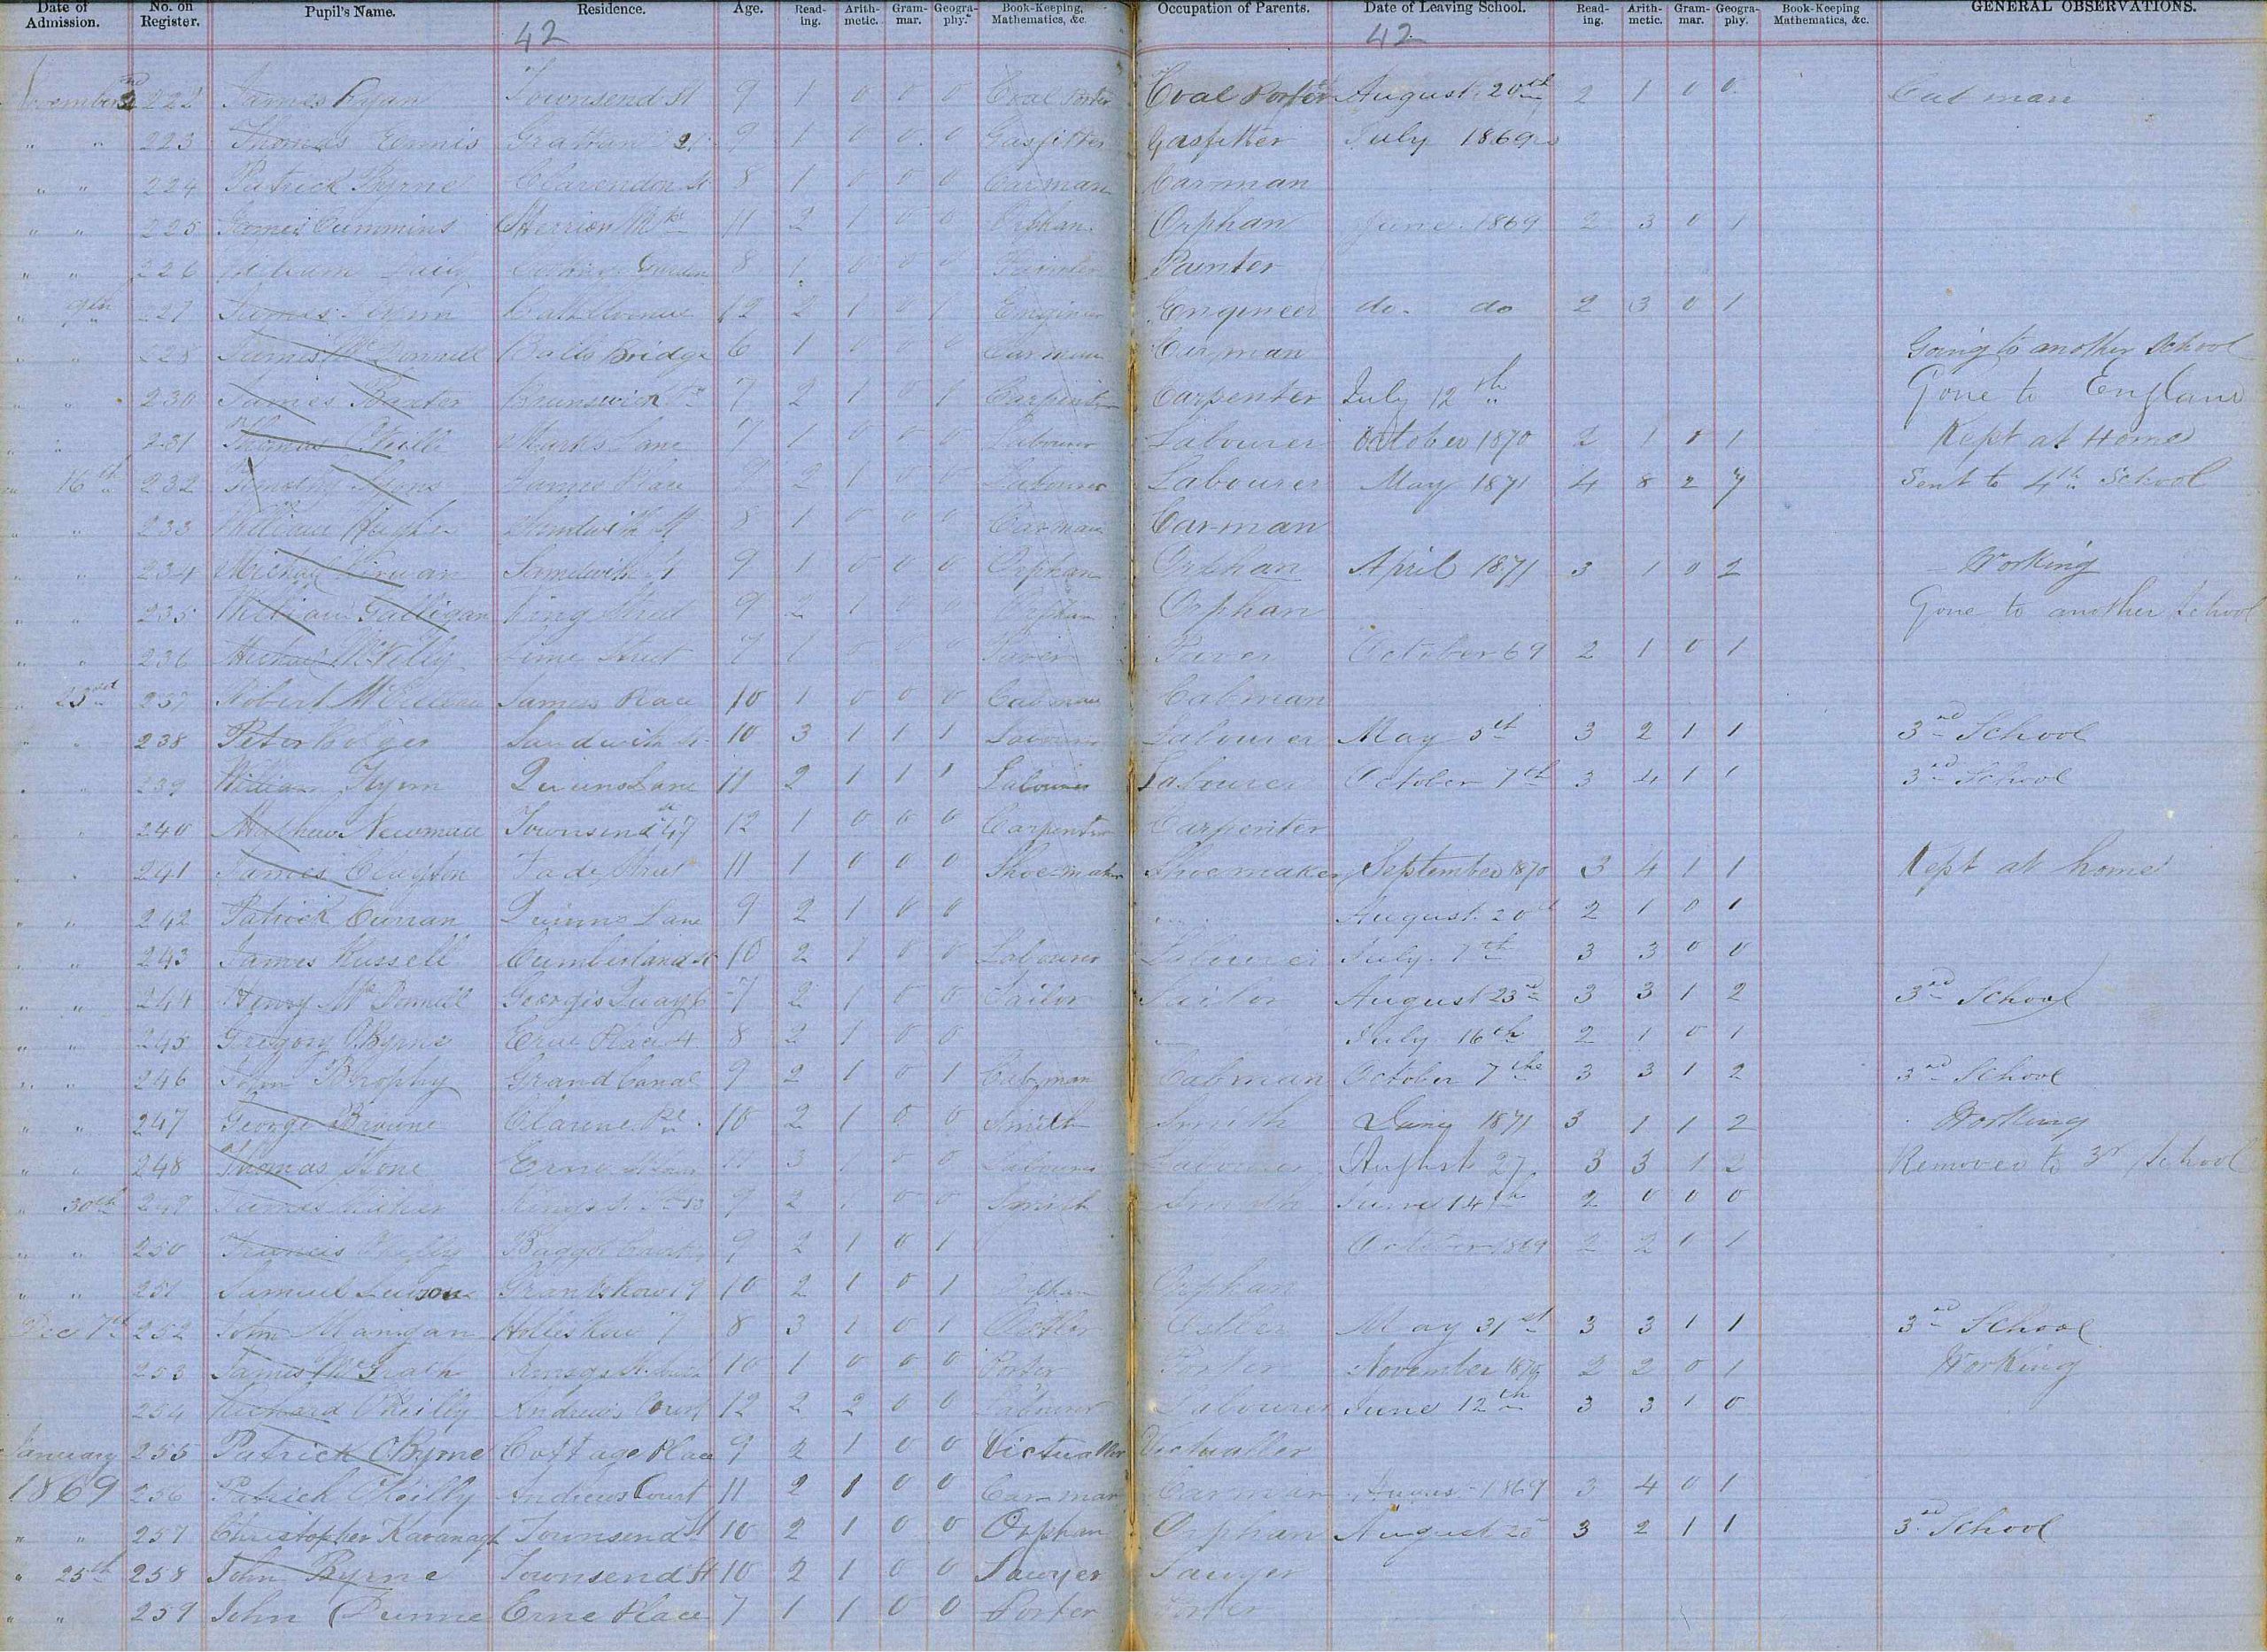 Date of Admission. No. on Register. Pupil's Name. Residence. Age. Reading. Arithmetic. Grammar. Geography. Book-Keeping, Mathematics, &c. Occupation of Parents. Date of Leaving School. Reading. Arithmetic. Grammar. Geography. Book-Keeping Mathematics, &c. GENERAL OBSERVATIONS.
42 42
November 2nd 222 James Ryan Townsend St 9 1 0 0 0 Coal Porter Coal Porter August 20th 2 1 0 0 Cab man
" " 223 Thomas Ennis Grattan St 9 1 0 0 0 Gasfitter Gasfitter July 1869
" " 224 Patrick Byrne Clarendon St 8 1 0 0 0 Carman Carman
" " 225 James Cummins Merrion 11 2 1 0 0 Orphan Orphan June 1869 2 3 0 1
" " 226 William 8 1 0 0 0 Painter Painter
" 9th 227 James Bath Avenue 12 2 1 0 1 Engineer Engineer do. do 2 3 0 1
" " 228 James Balls Bridge 6 1 0 0 0 Carman Carman Going to another School
" " 230 James Baxter Brunswick St 7 2 1 0 1 Carpenter Carpenter July 12th Gone to England
" " 231 Thomas O'Neill Marks Lane 7 1 0 0 0 Labourer Labourer October 1870 2 1 1 1 Kept at Home
" 16th 232 Timothy Lyons James Place 9 2 1 0 0 Labourer Labourer May 1871 4 8 2 7 Sent to 4th School
" " 233 William Hughes Sandwith St 8 1 0 0 0 Carman Carman
" " 234 Michael Kirwan Sandwith St 9 1 0 0 0 Orphan Orphan April 1871 3 1 0 2 Working
" " 235 William Galligan King Street 9 2 1 0 0 Orphan Orphan Gone to another School
" " 236 Michael Lime Street 7 1 0 0 0 Paver Paver October 69 2 1 0 1
" 23rd 237 Robert James Place 10 1 0 0 0 Cabman Cabman
" " 238 Peter Bolger Sandwith St 10 3 1 1 1 Labourer Labourer May 5th 3 2 1 1 3rd School
" " 239 William Flynn Quinns Lane 11 2 1 1 1 Labourer Labourer October 7th 3 4 1 1 3rd School
" " 240 Mathew Newman Townsend St 47 12 1 0 0 0 Carpenter Carpenter
" " 241 James Clayton Fade Street 11 1 0 0 0 Shoe-maker Shoemaker September 1870 3 4 1 1 Kept at home
" " 242 Patrick Curran Quinns Lane 9 2 1 0 0 August 20th 2 1 0 1
" " 243 James Russell Cumberland St 10 2 1 0 0 Labourer Labourer July 7th 3 3 0 0
" " 244 Henry McDonnell Georges Quay 6 7 2 1 0 0 Sailor Sailor August 23rd 3 3 1 2 3rd School
" " 245 Gregory O'Byrne Erne Place 4 8 2 1 0 0 July 16th 2 1 0 1
" " 246 John Brophy Grand Canal 9 2 1 0 1 Cabman Cabman October 7the 3 3 1 2 3rd School
" " 247 George Browne Clarence Pl 10 2 1 0 0 Smith Smith June 1871 3 1 1 2 Working
" " 248 Thomas Stone Erne 11 3 1 0 0 Labourer Labourer August 27 3 3 1 2 Removed to 3r School
" 30th 249 James 9 2 1 0 0 Smith Smith June 14th 2 0 0 0
" " 250 Francis O'Reilly Baggot Court 9 2 1 0 1 October 1869 2 2 0 1
" " 251 Samuel Grants Row 17 10 2 1 0 1 Orphan Orphan
Dec 7th 252 John Mangan Holles Row 7 8 3 1 0 1 Ostler Ostler May 31st 3 3 1 1 3rd School
253 James McGrath 10 1 0 0 0 Porter Porter November 1870 2 2 0 1 Working
254 Richard O'Reilly Andrews Court 12 2 2 0 0 Labourer Labourer June 12th 3 3 1 0
January 255 Patrick O'Byrne Cottage Place 9 2 1 0 0 Victualler Victualler
1869 256 Patrick O'Reilly Andrews Court 11 2 1 0 0 Car-man Carman 1869 3 4 0 1
" " 257 Christopher Kavanagh Townsend St 10 2 1 0 0 Orphan Orphan August 20 3 2 1 1 3rd School
" 25th 258 John Byrne Townsend St 10 2 1 0 0 Sawyer Sawyer
" " 259 John Dunne Erne Place 7 1 1 0 0 Porter Porter